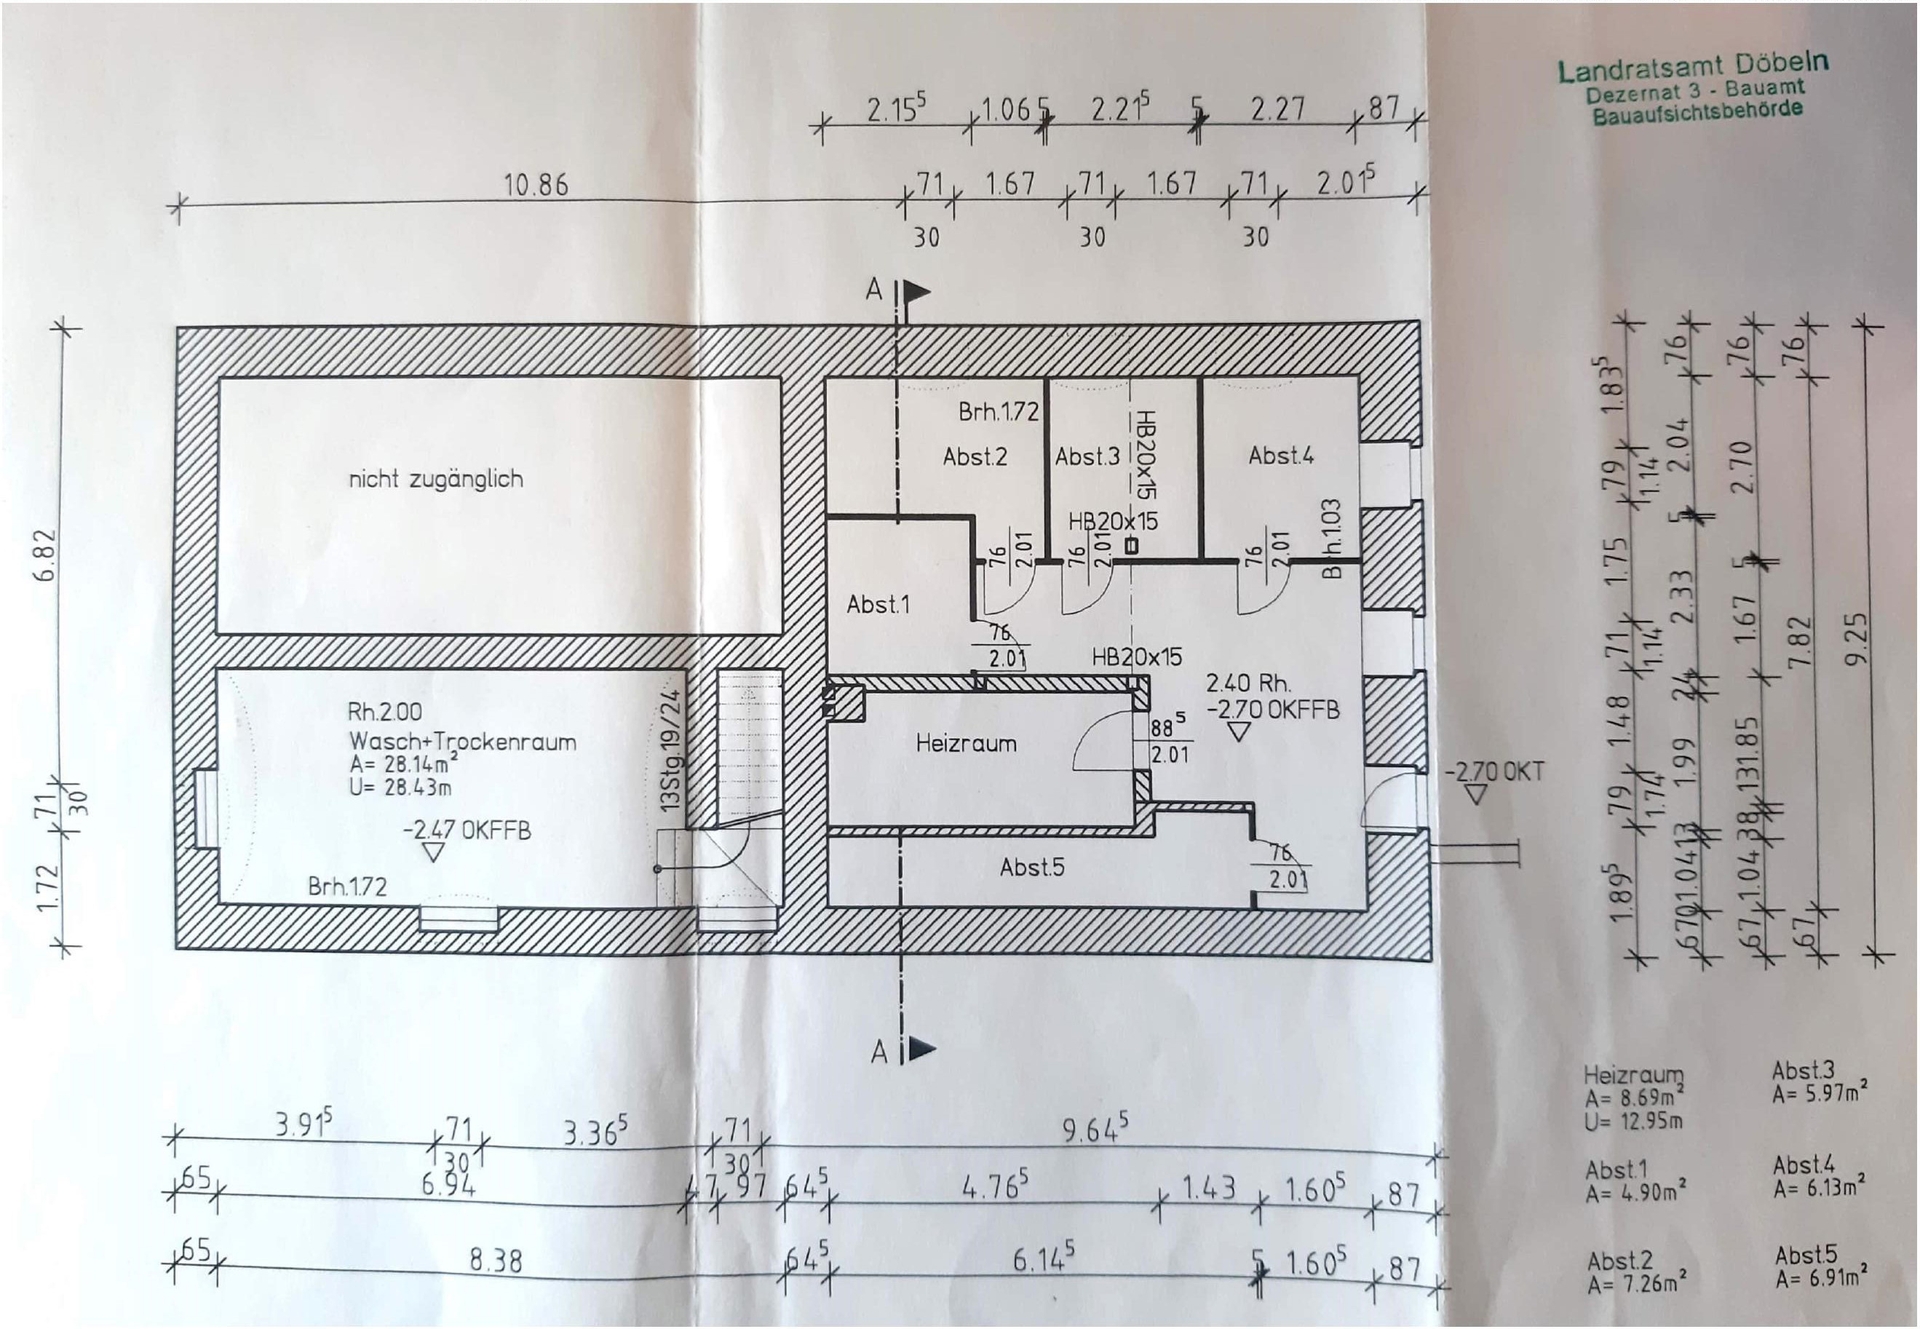 Landratsamt Döbeln
Dezernat 3 - Bauamt
Bauaufsichtsbehörde
2.15⁵ 1.06 5 2.21⁵ 5 2.27 87
10.86 71 1.67 71 1.67 71 2.01⁵
30 30 30
A
6.82
71
30
1.72
nicht zugänglich
Brh.1.72
Abst.2
Abst.3
HB20x15
Abst.4
HB20x15
76
2.01
76
2.01
76
2.01
Brh.1.03
Abst.1
76
2.01
HB20x15
2.40 Rh.
-2.70 OKFFB
Rh.2.00
Wasch+Trockenraum
A= 28.14m²
U= 28.43m
-2.47 OKFFB
Brh.1.72
13Stg.19/24
Heizraum
88⁵
2.01
-2.70 OKT
Abst.5
76
2.01
A
1.83⁵
79
1.14
1.75
71
1.14
1.48
79
1.74
1.89⁵
76
2.04
5
2.33
24
1.99
13
1.04
67
76
2.70
5
1.67
1.85
13
38
1.04
67
76
7.82
67
9.25
3.91⁵ 71 3.36⁵ 71 9.64⁵
30 30
65 6.94 47 97 64⁵ 4.76⁵ 1.43 1.60⁵ 87
65 8.38 64⁵ 6.14⁵ 5 1.60⁵ 87
Heizraum
A= 8.69m²
U= 12.95m
Abst.3
A= 5.97m²
Abst.1
A= 4.90m²
Abst.4
A= 6.13m²
Abst.2
A= 7.26m²
Abst.5
A= 6.91m²